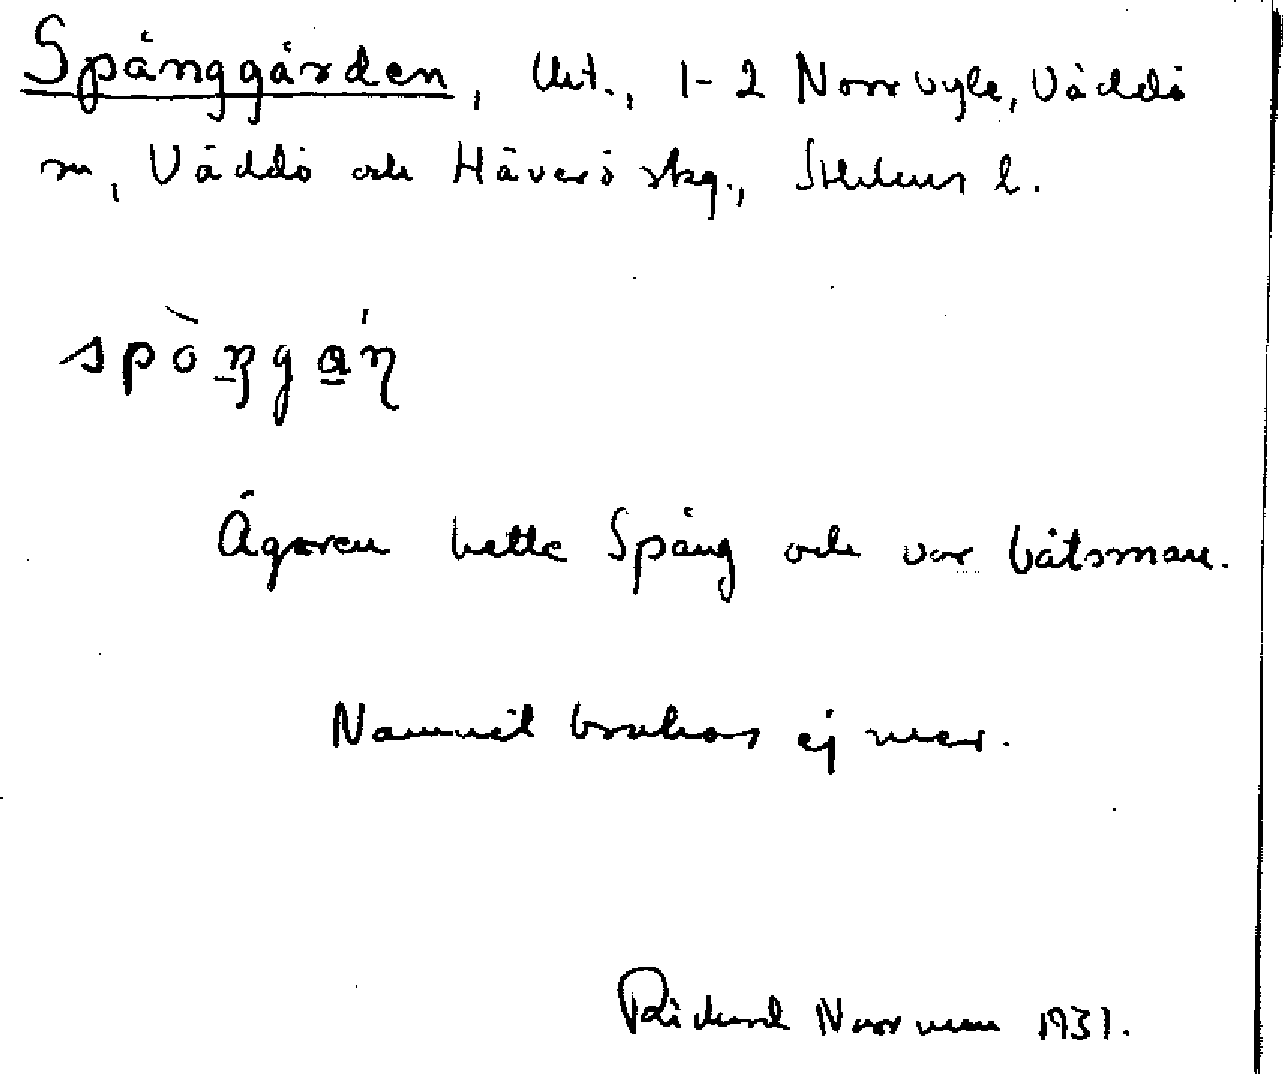 Spånggården, Ut., 1-2 Norrbyle, Väddö
sn, Väddö och Häverö skg., Sthlms l.
spò̀ŋgá̱ɳ
Ägaren hette Spång och var båtsman.
Namnet brukas ej mer.
Rickard Norrman 1931.